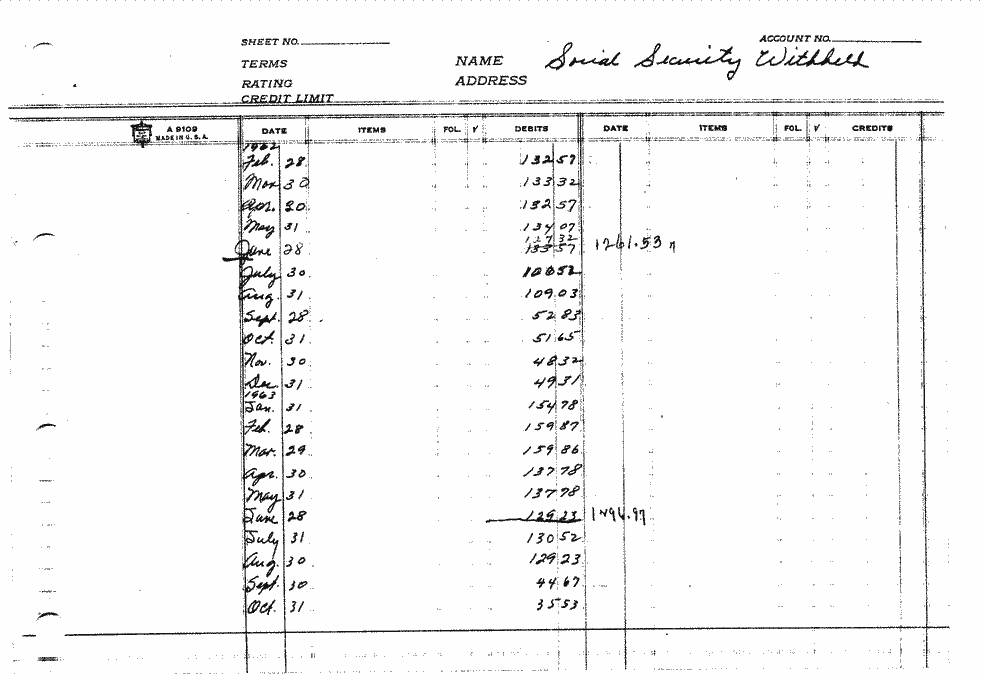 SHEET NO.
ACCOUNT NO.
TERMS
NAME Social Security Withheld
RATING
ADDRESS
CREDIT LIMIT
A 9109
MADE IN U. S. A.
DATE ITEMS FOL. √ DEBITS DATE ITEMS FOL. √ CREDITS
1962
Feb. 28 132 57
Mar 30 133 32
Apr. 30 132 57
May 31 134 07
127 32
June 28 133 57 1261.53
July 30 106 52
Aug. 31 109 03
Sept. 28 52 83
Oct. 31 51 65
Nov. 30 48 32
Dec. 31 49 31
1963
Jan. 31 154 78
Feb. 28 159 87
Mar. 29 159 86
Apr. 30 137 78
May 31 137 78
June 28 129 23
July 31 130 52
Aug. 30 129 23
Sept. 30 44 67
Oct. 31 35 53